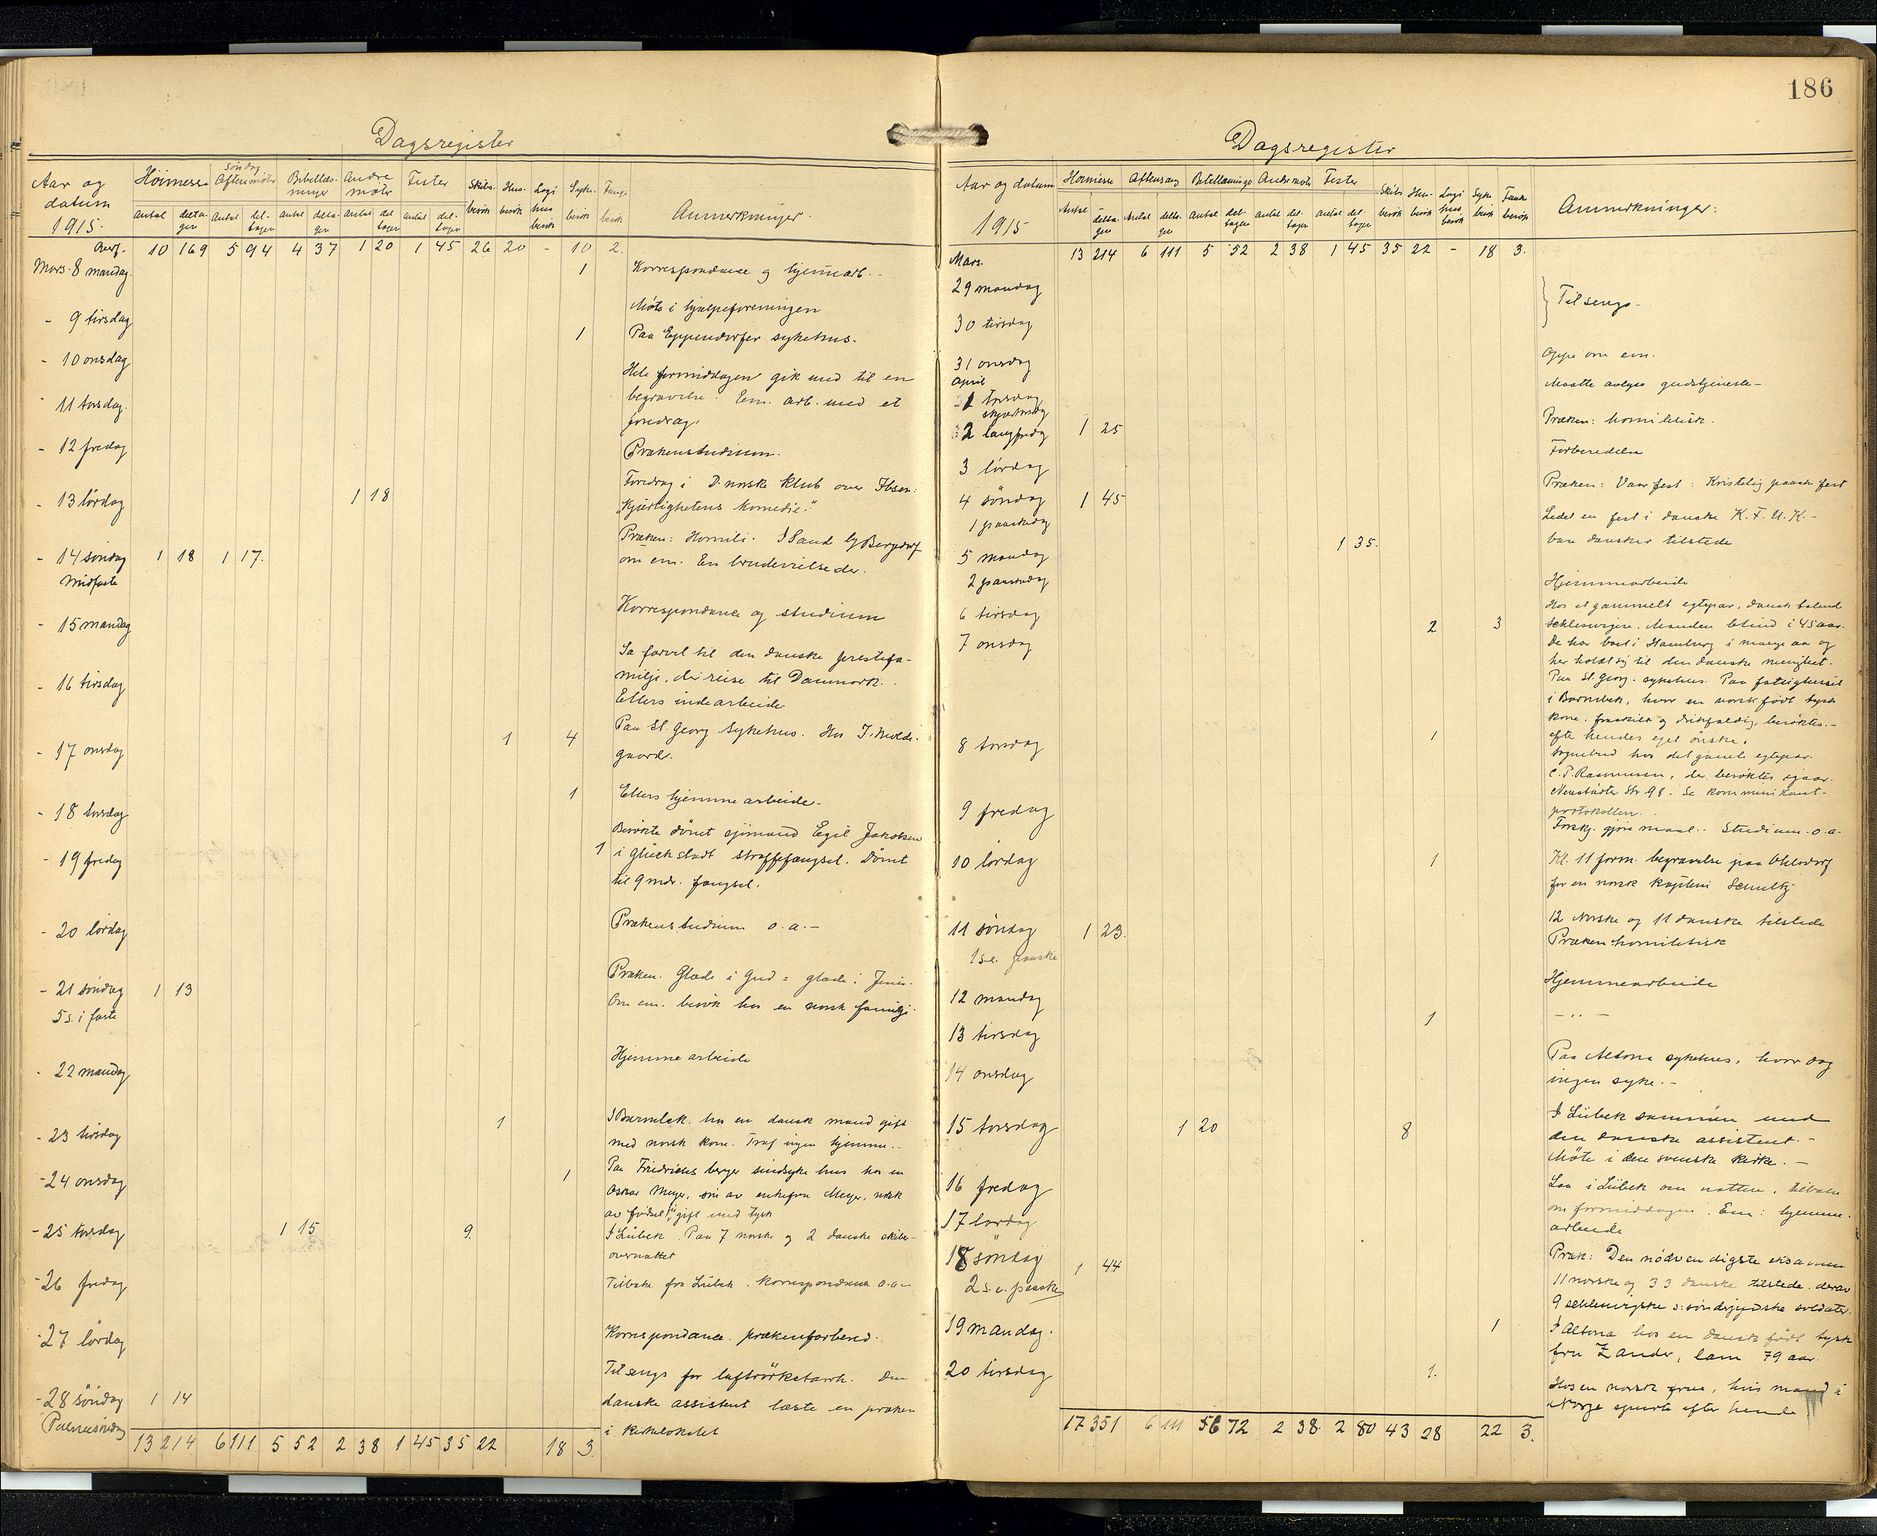 186
Dagsregister
Aar og datum 1915.
Høimesse antal delta-gere
Søndag Aftenmøter antal del-tagere
Bibellæs-ninger antal delta-gere
Andre møter antal del tagere
Fester antal del-tagere
Skibs-besøk
Hus-besøk
Logi hus besøk
Syke-besøk
Fange besøk
Anmerkninger.
Overf. 10 169 5 94 4 37 1 20 1 45 26 20 - 10 2.
Mars. 8 mandag. 1 Korrespondance og hjemmearb. -
- 9 tirsdag Møte i hjælpeforeningen
1 Paa Eppendorfer sykehus.
- 10 onsdag Hele formiddagen gik med til en
begravelse. Em. arb. med et
- 11 torsdag. foredrag.
- 12 fredag Prækenstudium.
- 13 lørdag 1 18 Foredrag i D. norske klub over Ibsen:
"Kjærlighetens komedie".
- 14 søndag 1 18 1 17. Præken: Homili. I Sand b/ Bergedorf
Midfaste om em. En brudevielse der.
- 15 mandag Korrespondance og studium
- 16 tirsdag Sa farvel til den danske prestefa-
milje, der reise til Danmark.
Ellers indearbeide
- 17 onsdag 1 4 Paa St. Georg Sykehus. Hos J. Molde-
gaard.
- 18 torsdag 1 Ellers hjemmearbeide -
- 19 fredag 1 Besøkte dømt sjømand Egil Jakobsen
i Glückstadt straffefængsel. Dømt
til 9 mdr. fængsel.
- 20 lørdag Prækenstudium o. a. -
- 21 søndag 1 13 Præken. Glæde i Gud = glæde i Jesus.
5 s. i faste Om em. besøk hos en norsk familje.
- 22 mandag Hjemmearbeide
- 23 tirsdag 1 I Barmbek hos en dansk mand gift
med norsk kone. Traf ingen hjemme. -
- 24 onsdag 1 Paa Friedrichsberger sindsyke hus hos en
Oskar Meyer, søn av enkefru Meyer, norsk
av fødsel, gift med tysk
- 25 torsdag 1 15 9. I Lübek. Paa 7 norske og 2 danske skibe-
overnattet
- 26 fredag Tilbake fra Lübek. Korrespondance o. a -
- 27 lørdag Korrespondance. prækenforbered.
- 28 søndag 1 14 Tilsengs for luftrørkatarrh. Den
Palmesøndag danske assistent læste en præken
i kirkelokalet
13 214 6 111 5 52 2 38 1 45 35 22 18 3.
Dagsregister
Aar og datum 1915
Høimesse Antal delta-gere
Aftensang Antal delta-gere
Bibellæsninge antal del tagere
Andre møter antal del-tagere
Fester antal del-tagere
Skibs besøk
Hus-besøk
Logi hus besøk
Syke besøk
Fange besøk
Anmerkninger:
Mars. 13 214 6 111 5 52 2 38 1 45 35 22 - 18 3.
29 mandag Tilsengs -
30 tirsdag
31 onsdag Oppe om em.
April
1 torsdag Maatte avlyse gudstjeneste -
skjærtorsdag
2 langfredag 1 25 Præken: homiletisk.
3 lørdag Forberedelse
4 søndag 1 45 Præken: Vaar fest: Kristelig paaske fest
1 paaskedag
5 mandag 1 35. Ledet en fest i danske K. F. U. K. -
2 paaskedag bare dansker tilstede
6 tirsdag Hjemmearbeide
7 onsdag 2 3 Hos et gammelt egtepar, dansk talend
Schleswigere. Manden blind i 45 aar.
De har boet i Hamburg i mange aar og
her holdt sig til den danske menighet.
Paa St. Georg. sykehus. Paa fattighuset
i Barmbek, hvor en norsk født tysk
kone, fraskilt og drikfældig, besøktes. -
efter hendes eget ønske.
8 torsdag 1 Sognebud hos det gamle egtepar.
C. P. Rasmussen, der besøktes igaar.
Neustädter Str 98. Se kommunikant-
protokollen.
9 fredag Forskj. gjøremaal. - Studium. o. a -
10 lørdag 1 Kl. 11 form. begravelse paa Ohlsdorf
for en norsk kaptein
11 søndag 1 23. 12 Norske og 11 danske tilstede
1 s. e. paaske Præken homiletisk
12 mandag Hjemmearbeide
13 tirsdag 1 - " -
14 onsdag Paa Altona sykehus, hvor dog
ingen syke. -
15 torsdag 1 20 8 I Lübek sammen med
den danske assistent. -
Møte i den svenske kirke. -
16 fredag Laa i Lübek om natten, tilbake
om formiddagen. Em: hjemme-
17 lørdag arbeide
18 søndag 1 44 Præk: Den nødvendigste eksamen
2 s. e. paaske 11 norske og 33 danske tilstede, derav
9 schleswigske o: sønderjydske soldater.
19 mandag. 1 I Altona hos en dansk født tysk
fru Zander, lam 79 aar.
20 tirsdag 1. Hos en norsk frue, hvis mand i
Norge spurte efter hende
17 351 6 111 56 72 2 38 2 80 43 28 22 3.